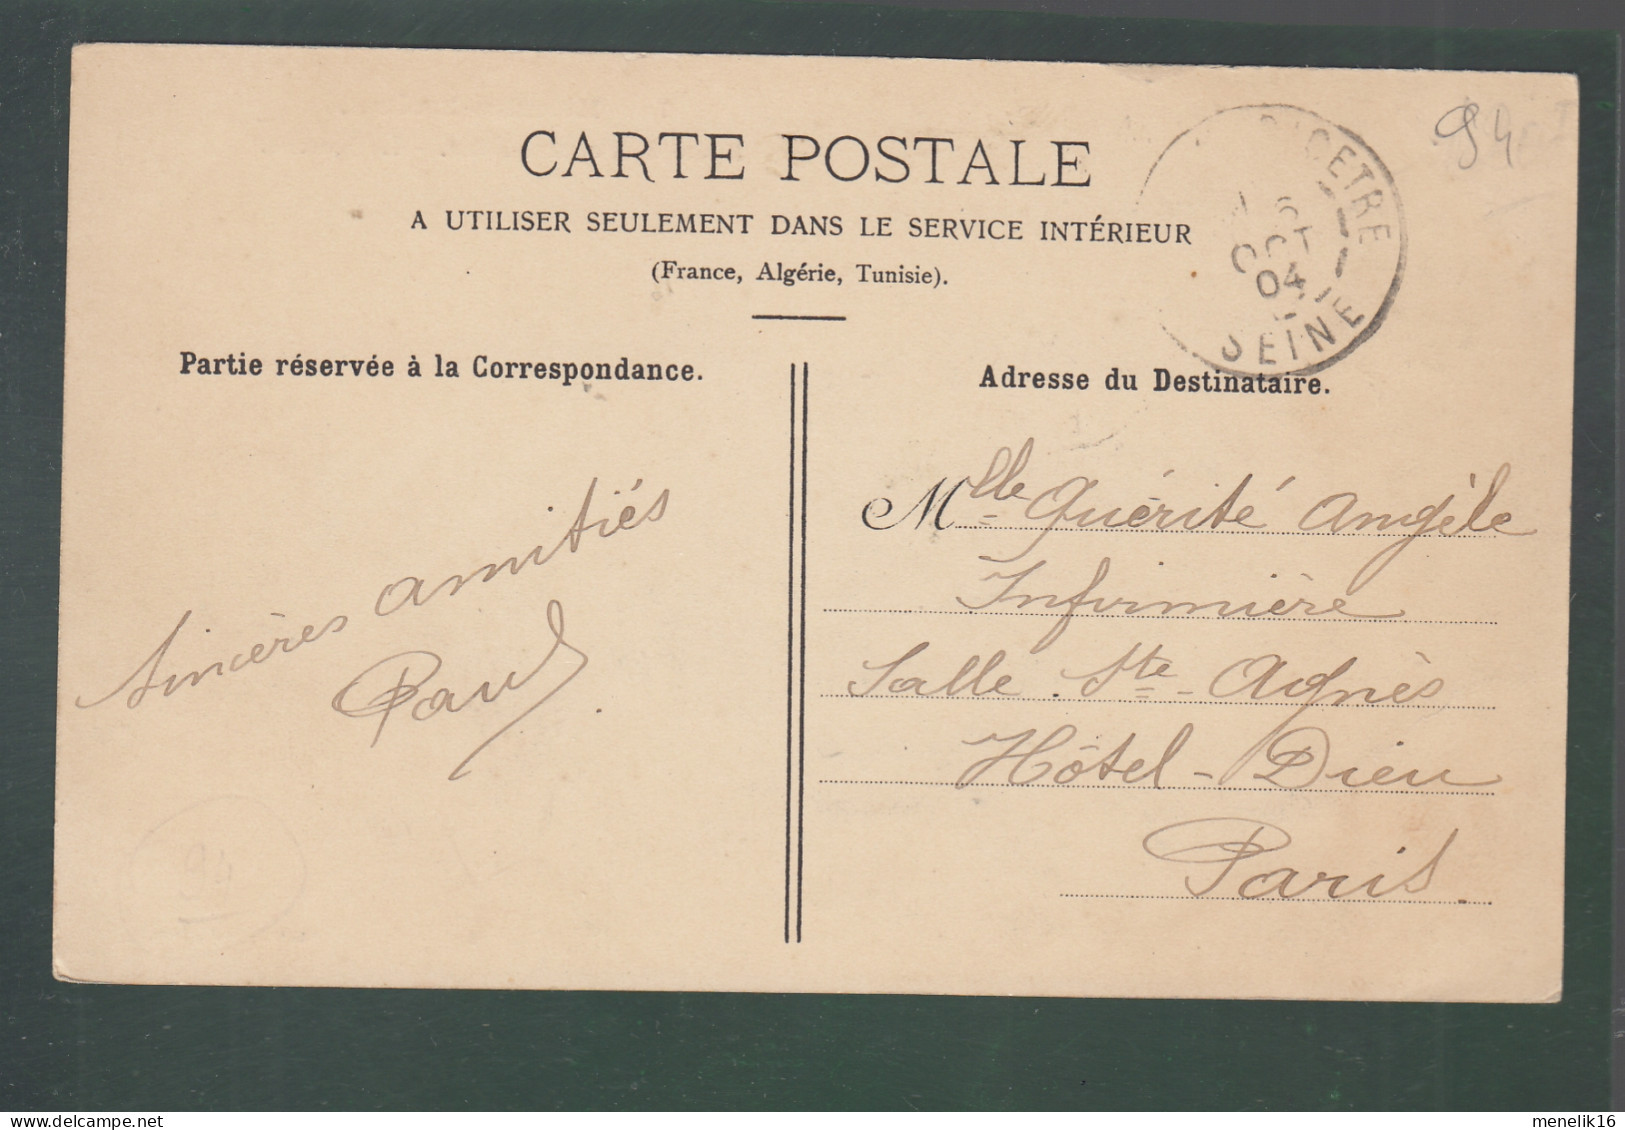 CARTE POSTALE
A UTILISER SEULEMENT DANS LE SERVICE INTÉRIEUR
(France, Algérie, Tunisie).
BICETRE
6
OCT
04
SEINE
94
Partie réservée à la Correspondance.
Sincères amitiés
Paul
94
Adresse du Destinataire.
Mlle Quérité Angèle
Infirmière
Salle Ste Agnès
Hôtel-Dieu
Paris
delcampe.net
menelik16